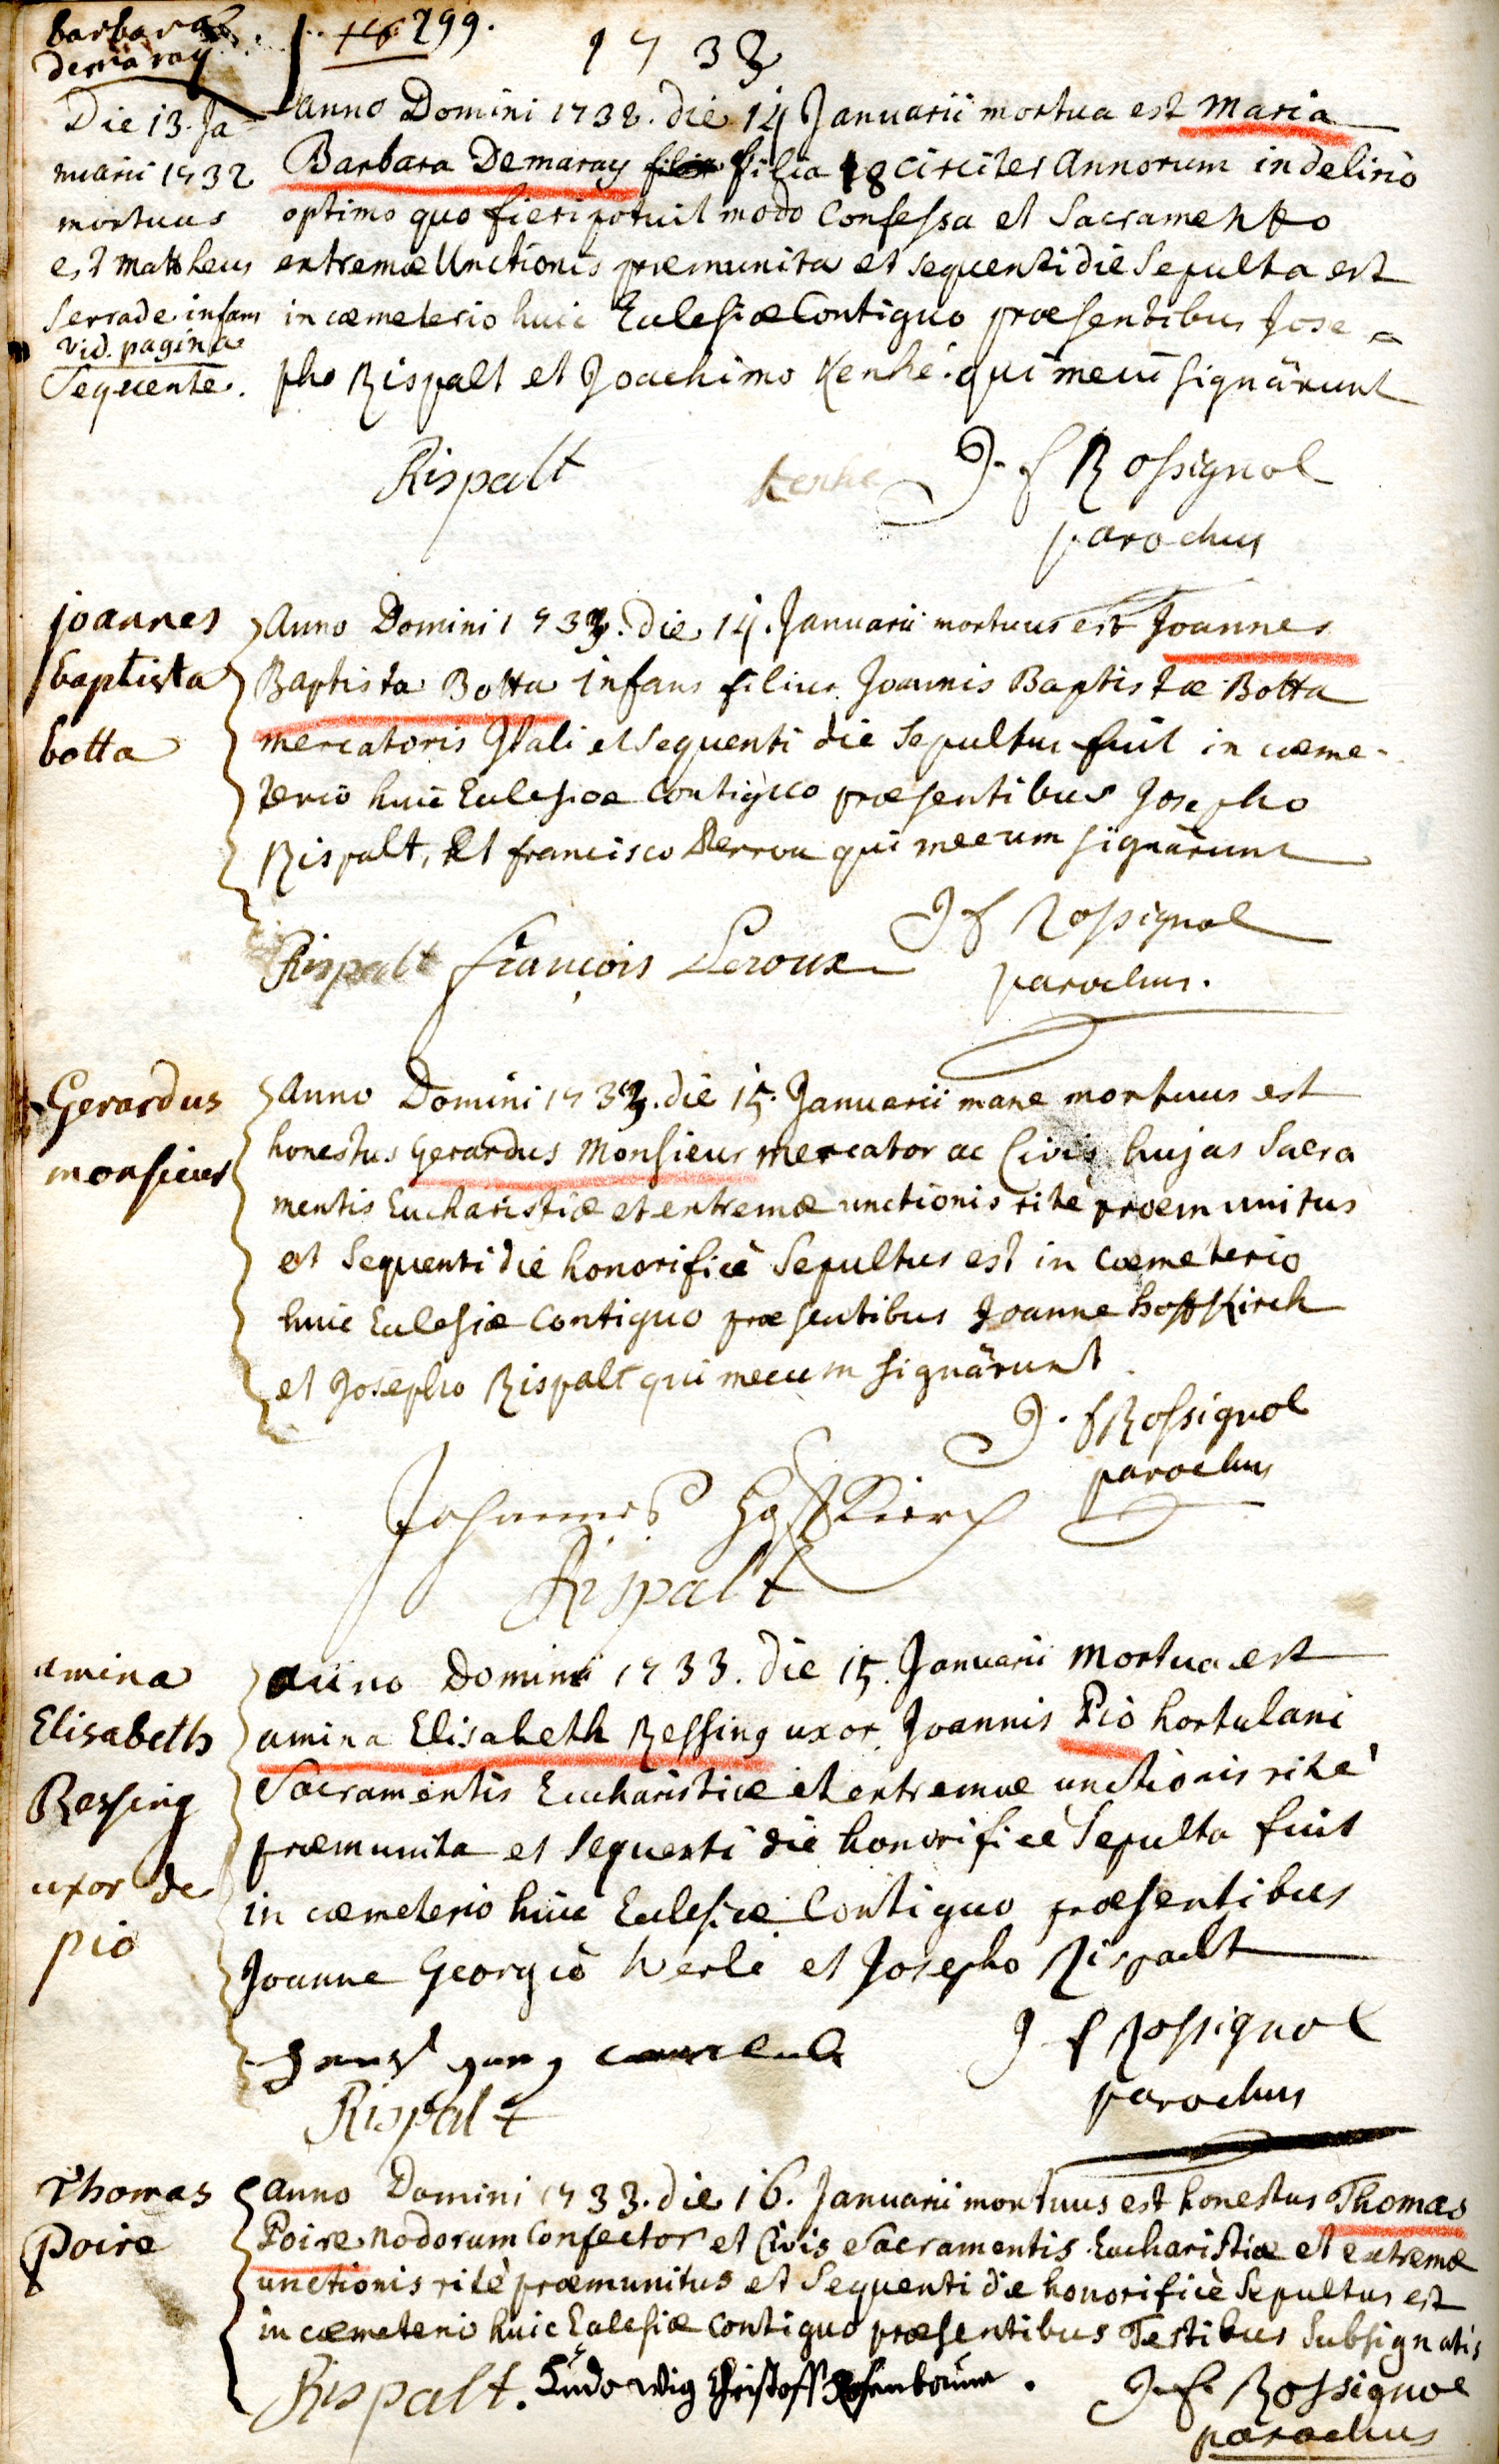 barbara
demaray
299.
1733
Die 13. Ja-
nuarii 1732
mortuus
est Mattheus
Serrade infans
vid. pagina
Sequente.
Anno Domini 1732. die 14 Januarii mortua est Maria
Barbara Demaray filia 18 circiter Annorum in delirio
optimo quo fieri potuit modo Confessa et Sacramento
extremæ Unctionis præmunita et sequenti die Sepulta est
in cœmeterio huic Eclesiæ Contiguo præsentibus Jose-
pho Rispalt et Joachimo Kenhé. qui mecū signârunt
Rispalt Kenhé J. f Rossignol
parochus
joannes
baptista
botta
Anno Domini 1733. die 14. Januarii mortuus est Joannes
Baptista Botta infans filius Joannis Baptistæ Botta
mercatoris Itali et sequenti die Sepultus fuit in cœme-
terio huic Eclesiæ Contiguo præsentibus Josepho
Rispalt, Et francisco Lerrou qui mecum signârunt
Rispalt françois Leroux J f Rossignol
parochus.
Gerardus
monsieur
Anno Domini 1733. die 15. Januarii mane mortuus est
honestus Gerardus Monsieur mercator ac Civis hujas Sacra
mentis Eucharistiæ et extremæ unctionis ritè præmunitus
et Sequenti die honorificè Sepultus est in Cœmeterio
huic Eclesiæ Contiguo præsentibus Joanne hoffKirch
et Josepho Rispalt qui mecum signârunt
J. f Rossignol
parochus
Johannes HoffKirch
Rispalt
amina
Elisabeth
Ressing
uxor de
pio
anno Domini 1733. die 15. Januarii Mortua est
amina Elisabeth Ressing uxor Joannis Pio hortulani
Sacramentis Eucharistiæ et extremæ unctionis ritè
præmunita et sequenti die honorificè Sepulta fuit
in cœmeterio huic Eclesiæ Contiguo præsentibus
Joanne Georgiô Werlé et Josepho Rispalt
J f Rossignol
Rispalt parochus
Thomas
Poire
Anno Domini 1733. die 16. Januarii mortuus est honestus Thomas
Poire nodorum Confector et Civis Sacramentis Eucharistiæ et extremæ
unctionis ritè præmunitus et Sequenti die honorificè Sepultus est
in cœmeterio huic Eclesiæ contiguo præsentibus Testibus Subsignatis
Rispalt. Ludowig Christoff Rosenbaum. J. f. Rossignol
parochus